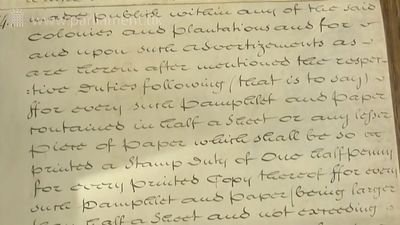 www.parliament.uk
made publick within any of the said
Colonies and Plantations and for
and upon such advertizements as
are herein after mentioned the respec
tive Duties following (that is to say)
ffor every such Pamphlet and Paper
contained in half a Sheet or any lesser
piece of Paper which shall be so
printed a Stamp Duty of One halfpenny
for every Printed Copy thereof ffor every
such Pamphlet and Paper (being larger
than half a Sheet and not exceeding